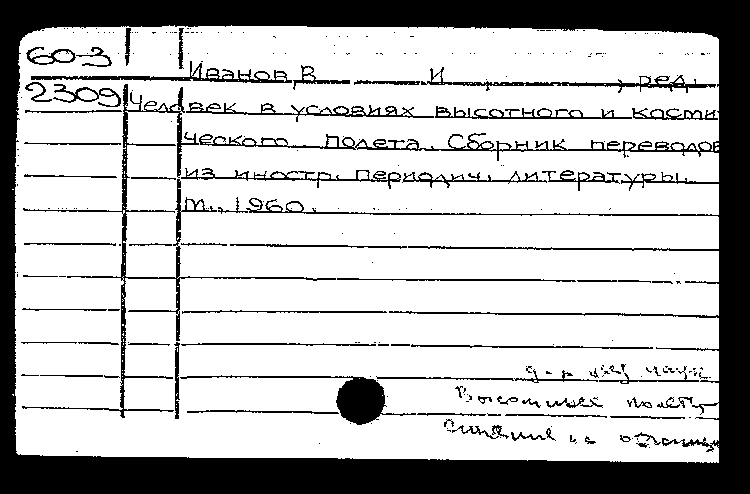 60-3
Иванов, В И , ред.
2309 Человек в условиях высотного и косми
ческого полета. Сборник переводов
из иностр. периодич. литературы.
М., 1960.
д-р мед наук
Высотные полеты
на